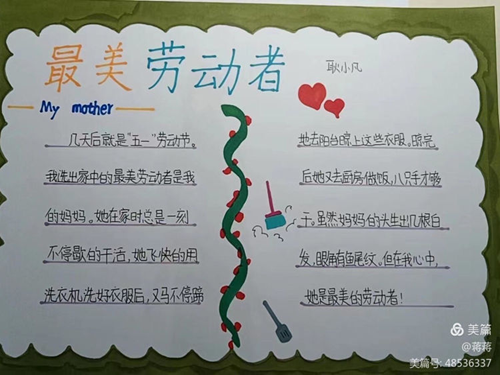 最美劳动者
耿小凡
My mother
几天后就是“五一”劳动节。
我选出家中的最美劳动者是我
的妈妈。她在家时总是一刻
不停歇的干活，她飞快的用
洗衣机洗好衣服后，又马不停蹄
地去阳台晾上这些衣服。晾完
后她又去厨房做饭，八只手才够
干。虽然妈妈的头生出几根白
发，眼角有鱼尾纹。但在我心中，
她是最美的劳动者！
美篇
@蒋蒋
美篇号: 48536337